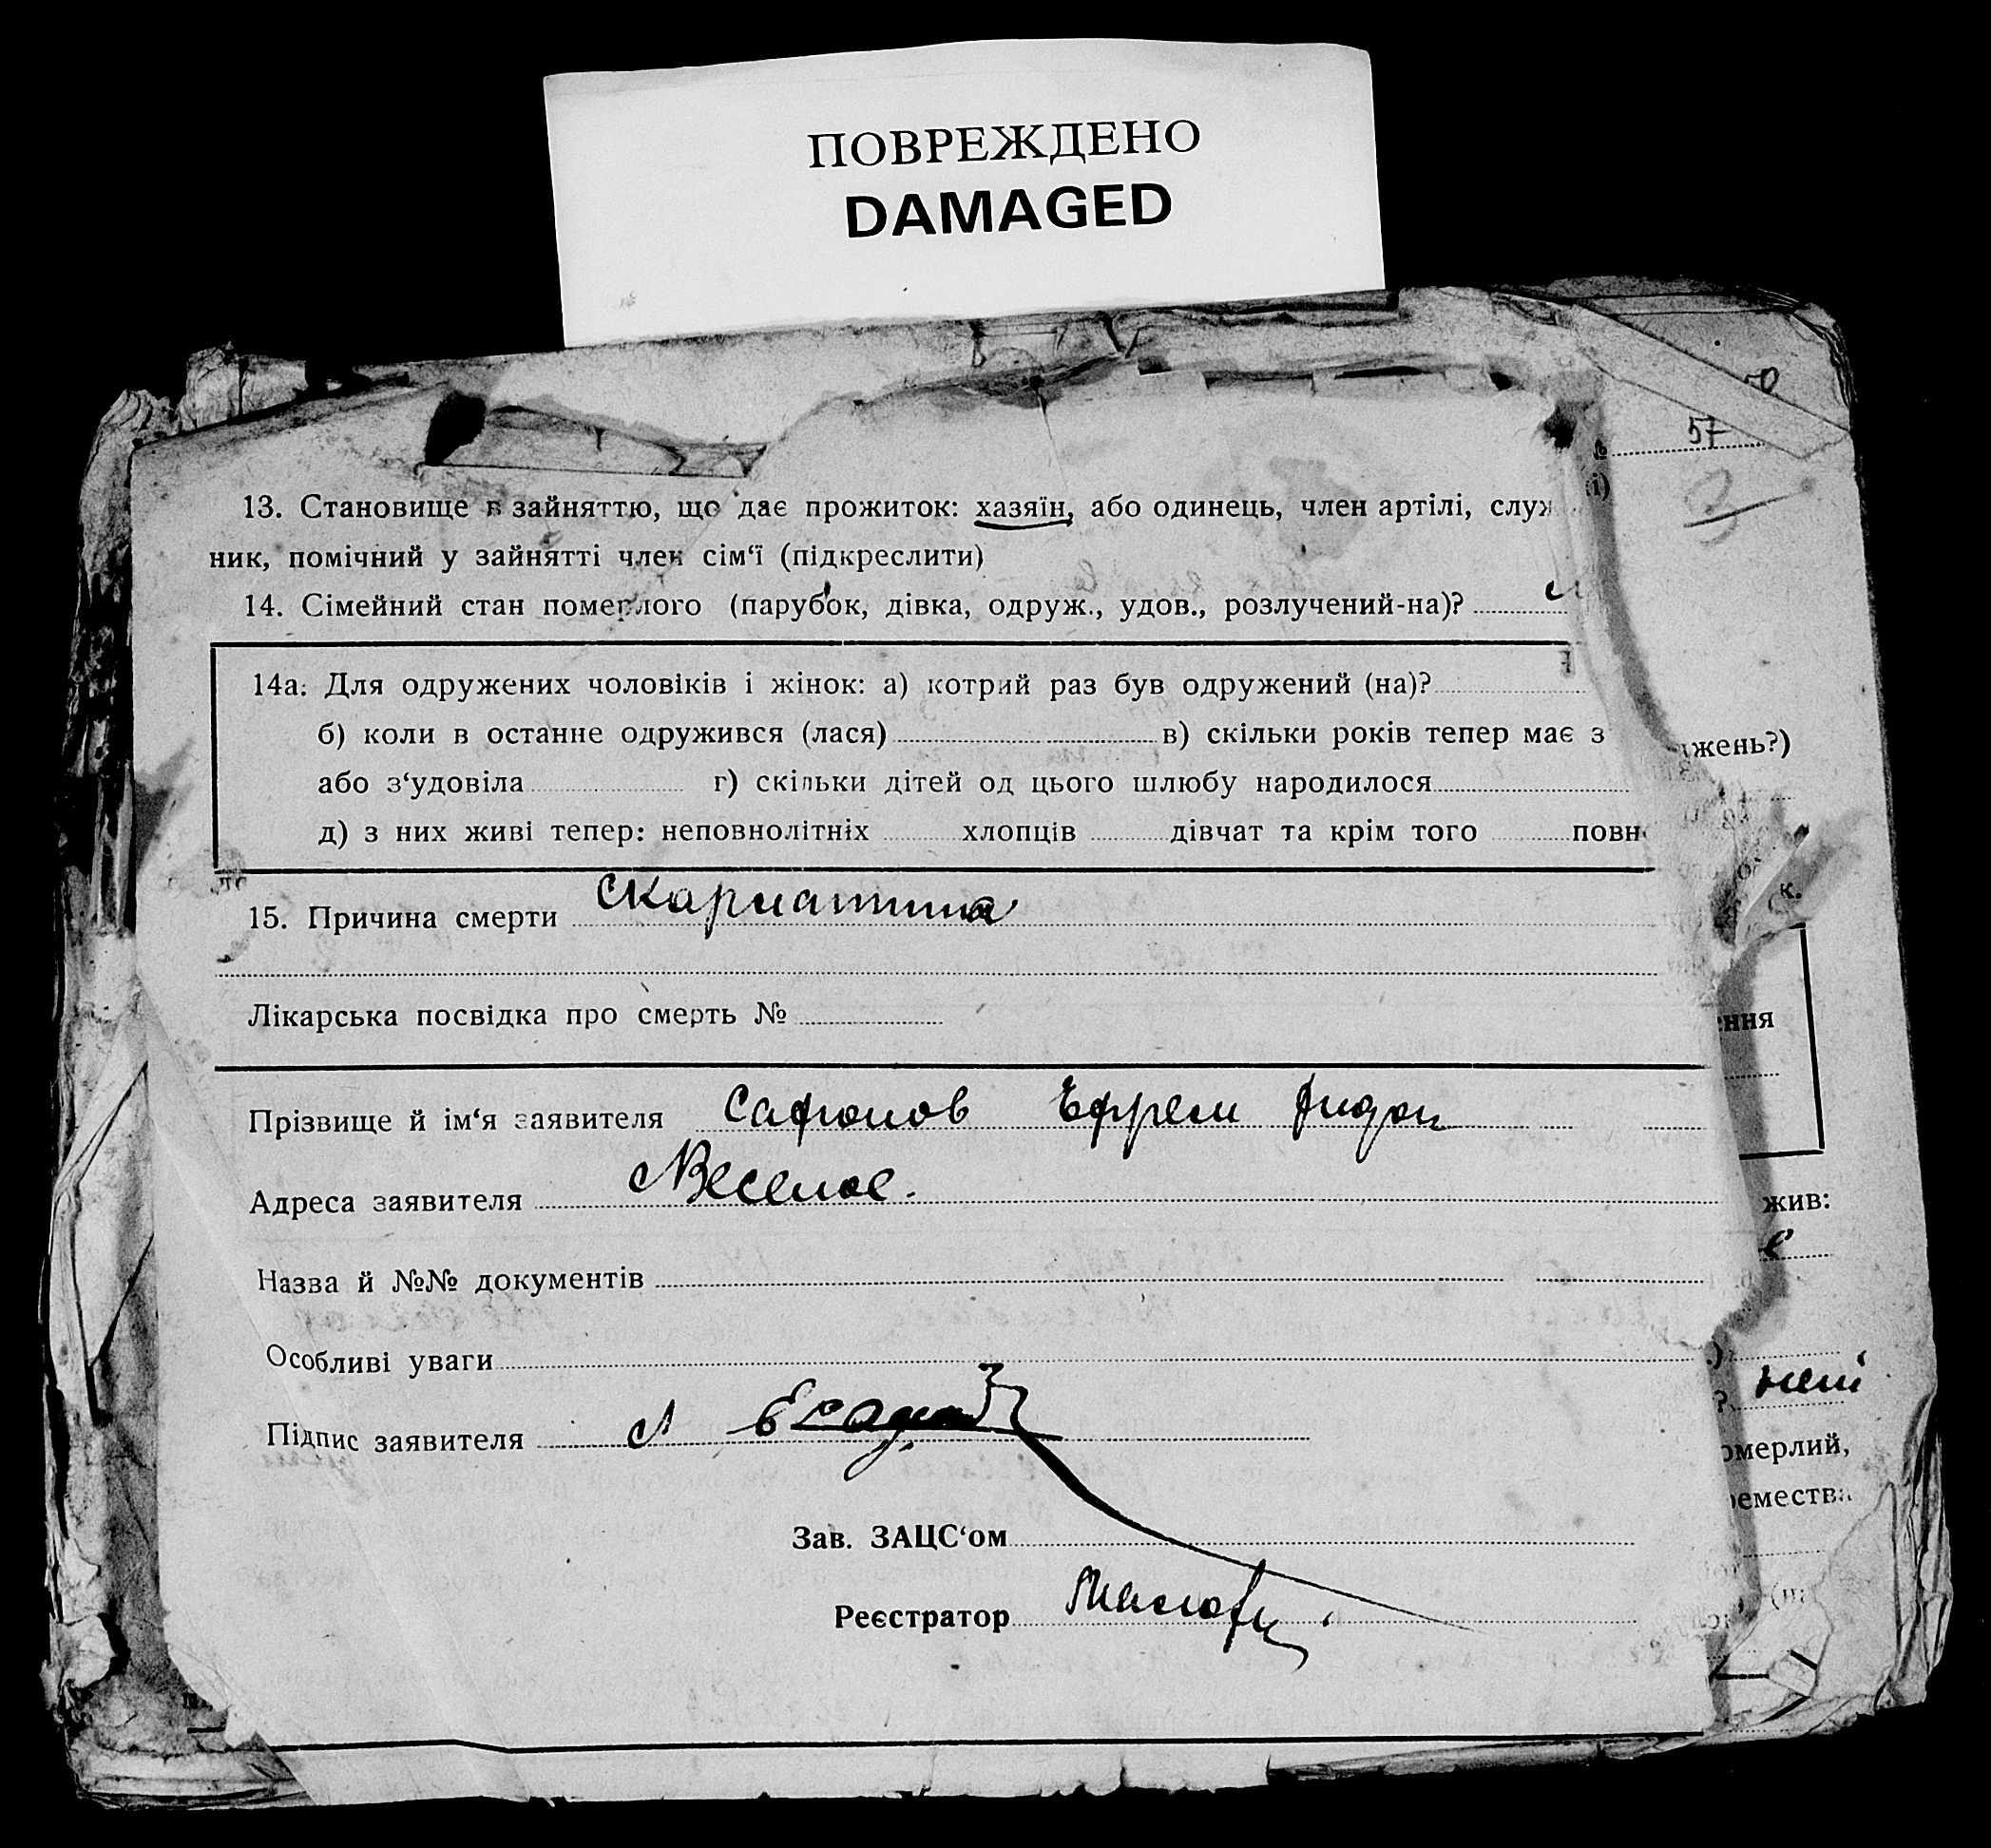 ПОВРЕЖДЕНО
DAMAGED
57
13. Становище в зайняттю, що дає прожиток: хазяїн, або одинець, член артілі, служ
ник, помічний у зайнятті член сім‘ї (підкреслити)
14. Сімейний стан померлого (парубок, дівка, одруж., удов., розлучений-на)?
14а. Для одружених чоловіків і жінок: а) котрий раз був одружений (на)?
б) коли в останнє одружився (лася) в) скільки років тепер має з
або з‘удовіла г) скільки дітей од цього шлюбу народилося
д) з них живі тепер: неповнолітніх хлопців дівчат та крім того повн
15. Причина смерти скарлатина
Лікарська посвідка про смерть №
Прізвище й ім‘я заявителя Сафронов Ефрем
Адреса заявителя Веселое.
Назва й №№ документів
Особливі уваги
Підпис заявителя
Зав. ЗАЦС‘ом
Реєстратор
джень?)
к.
ення
жив:
омерлий,
ремества